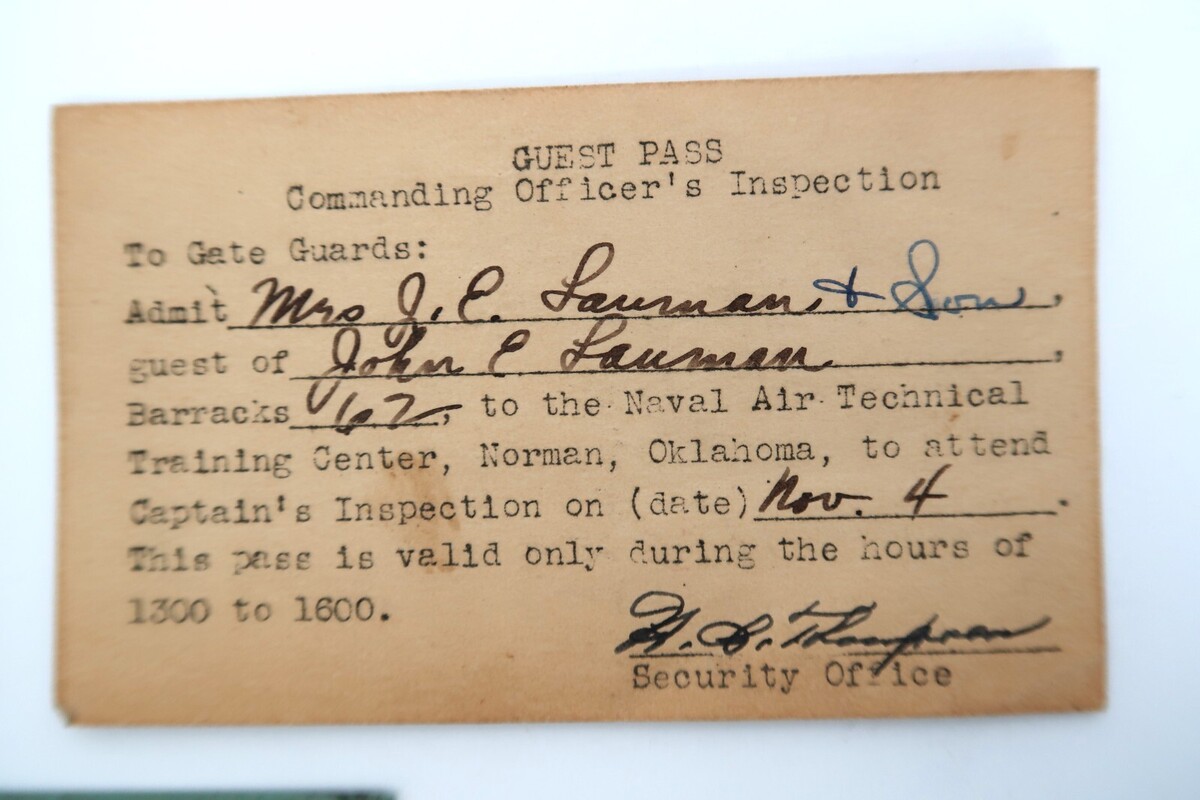 GUEST PASS
Commanding Officer's Inspection
To Gate Guards:
Admit Mrs J. E. Lauman & Son,
guest of John E Lauman,
Barracks 162, to the Naval Air Technical
Training Center, Norman, Oklahoma, to attend
Captain's Inspection on (date) Nov. 4.
This pass is valid only during the hours of
1300 to 1600.
Thompson
Security Office